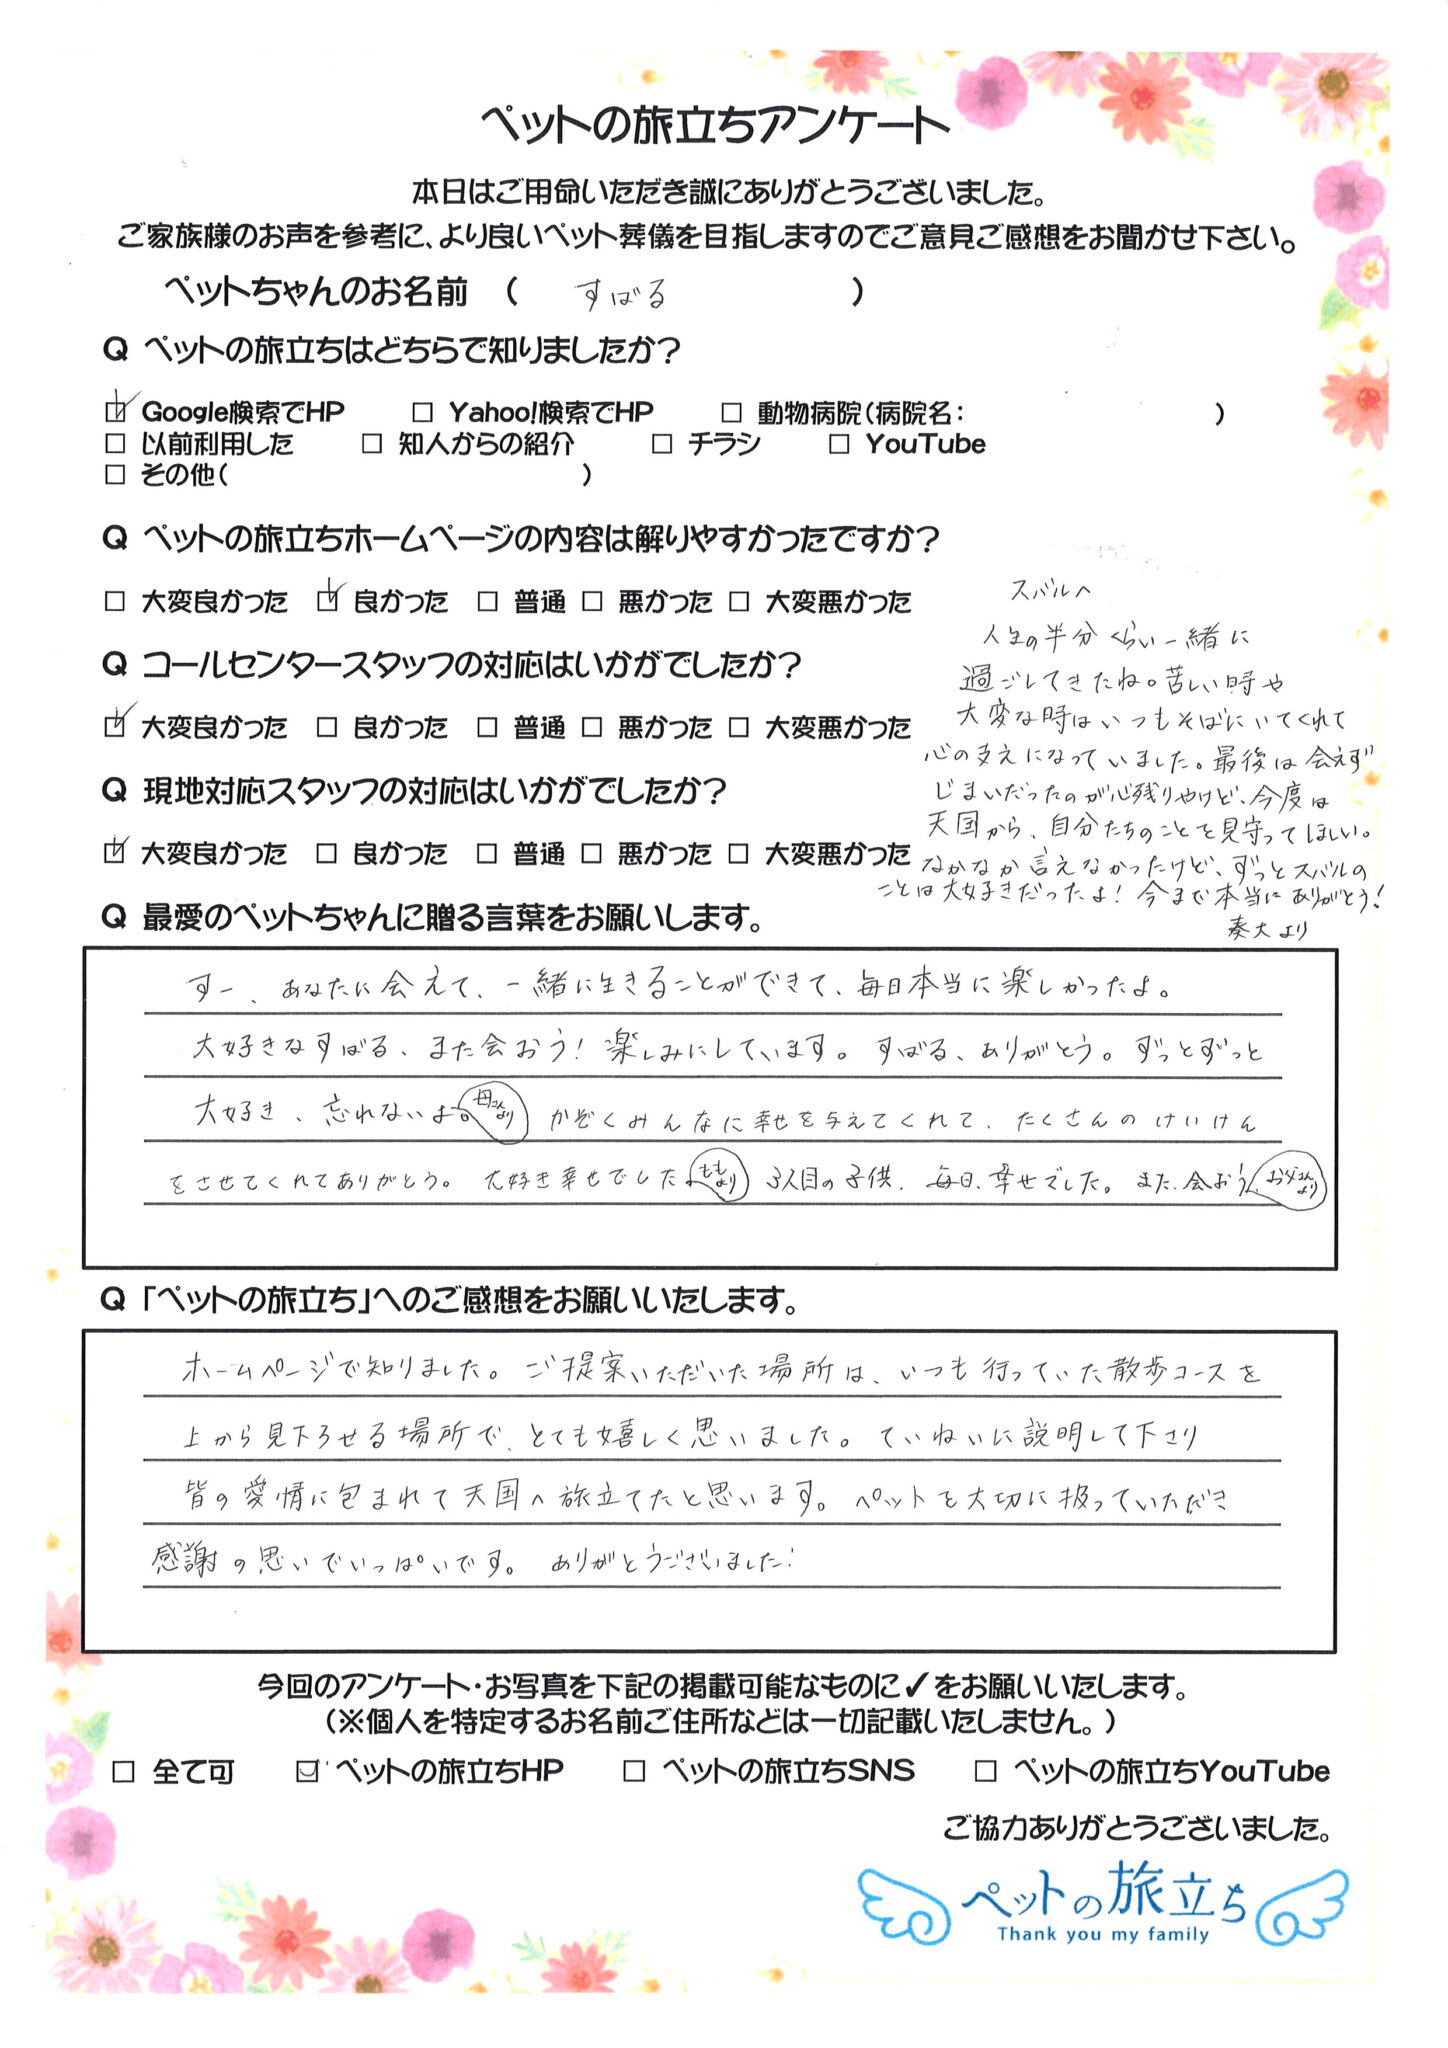 ペットの旅立ちアンケート
本日はご用命いただき誠にありがとうございました。
ご家族様のお声を参考に、より良いペット葬儀を目指しますのでご意見ご感想をお聞かせ下さい。
ペットちゃんのお名前 ( すばる )
Q ペットの旅立ちはどちらで知りましたか?
☑ Google検索でHP □ Yahoo!検索でHP □ 動物病院(病院名: )
□ 以前利用した □ 知人からの紹介 □ チラシ □ YouTube
□ その他( )
Q ペットの旅立ちホームページの内容は解りやすかったですか?
□ 大変良かった ☑ 良かった □ 普通 □ 悪かった □ 大変悪かった
Q コールセンタースタッフの対応はいかがでしたか?
☑ 大変良かった □ 良かった □ 普通 □ 悪かった □ 大変悪かった
Q 現地対応スタッフの対応はいかがでしたか?
☑ 大変良かった □ 良かった □ 普通 □ 悪かった □ 大変悪かった
スバルへ
人生の半分くらい一緒に
過ごしてきたね。苦しい時や
大変な時はいつもそばにいてくれて
心の支えになっていました。最後は会えず
じまいだったのが心残りやけど、今度は
天国から、自分たちのことを見守ってほしい。
なかなか言えなかったけど、ずっとスバルの
ことは大好きだったよ！今まで本当にありがとう！
奏大より
Q 最愛のペットちゃんに贈る言葉をお願いします。
すー、あなたに会えて、一緒に生きることができて、毎日本当に楽しかったよ。
大好きなすばる、また会おう！楽しみにしています。すばる、ありがとう。ずっとずっと
大好き、忘れないよ。母さんより かぞくみんなに幸せを与えてくれて、たくさんのけいけん
をさせてくれてありがとう。大好き幸せでした。ももより 3人目の子供、毎日、幸せでした。また、会おう！お父さんより
Q 「ペットの旅立ち」へのご感想をお願いいたします。
ホームページで知りました。ご提案いただいた場所は、いつも行っていた散歩コースを
上から見下ろせる場所で、とても嬉しく思いました。ていねいに説明して下さり
皆の愛情に包まれて天国へ旅立てたと思います。ペットを大切に扱っていただき
感謝の思いでいっぱいです。ありがとうございました！
今回のアンケート・お写真を下記の掲載可能なものに✓をお願いいたします。
(※個人を特定するお名前ご住所などは一切記載いたしません。)
□ 全て可 ☑ ペットの旅立ちHP □ ペットの旅立ちSNS □ ペットの旅立ちYouTube
ご協力ありがとうございました。
ペットの旅立ち
Thank you my family